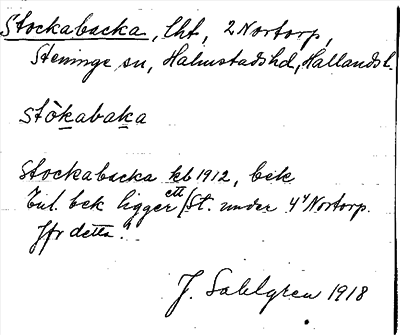 Stockabacka, lht, 2 Nortorp,
Steninge sn, Halmstadshd, Hallandsl.
stòkabaka
Stockabacka kb 1912, bek
Enl. bek ligger ett St. under 4 Nortorp.
Jfr detta.
J. Sahlgren 1918